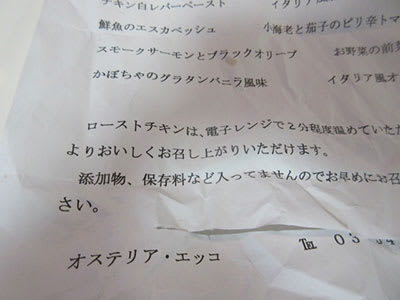 チキン白レバーペースト イタリア風
鮮魚のエスカベッシュ 小海老と茄子のピリ辛トマ
スモークサーモンとブラックオリーブ お野菜の前菜
かぼちゃのグラタンバニラ風味 イタリア風オ
ローストチキンは、電子レンジで2分程度温めていた
よりおいしくお召し上がりいただけます。
添加物、保存料など入ってませんのでお早めにお召
さい。
オステリア・エッコ ℡ 03